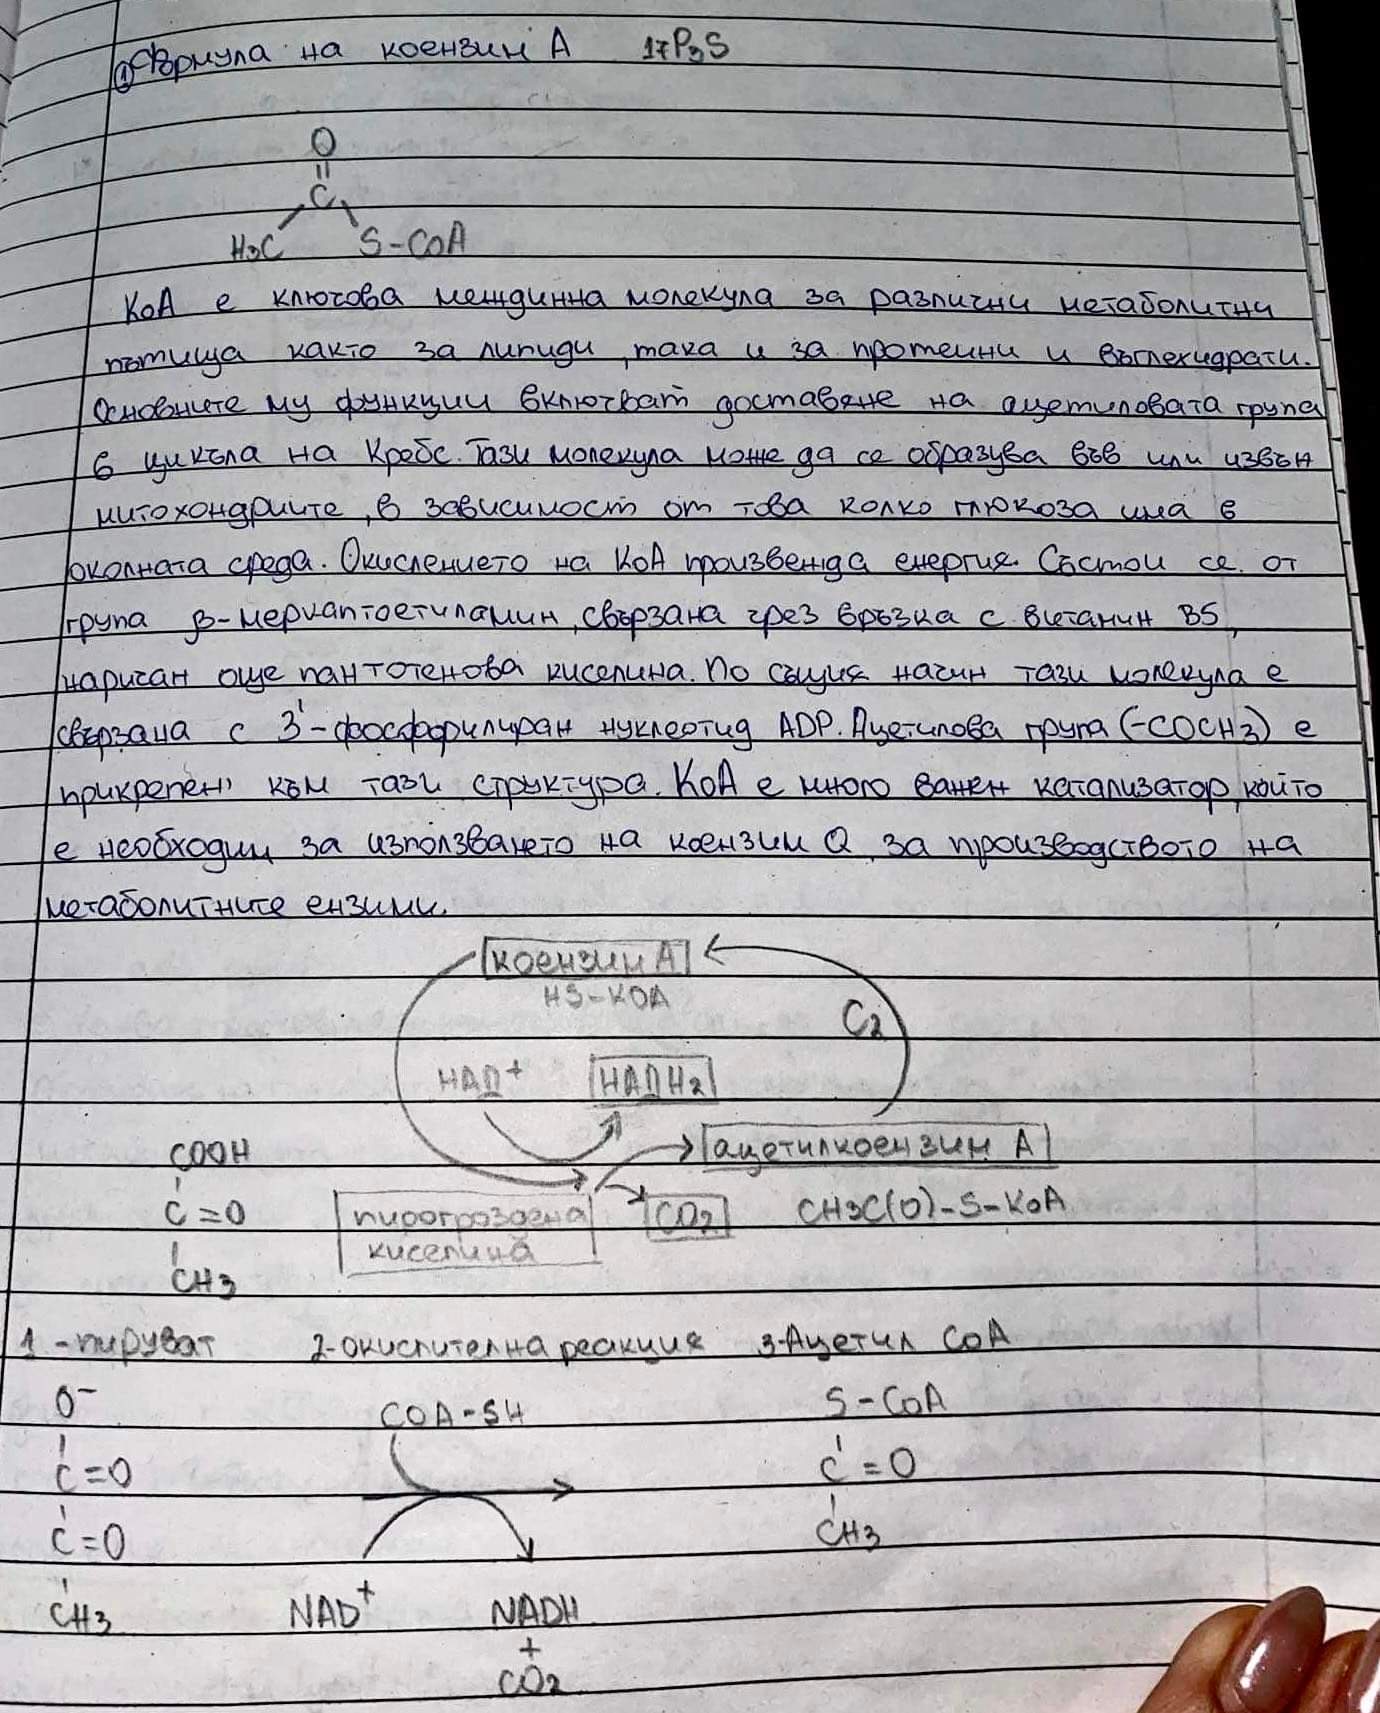 ① Формула на коензин А 17P3S
O
||
C
H3C S-CoA
КоА е ключова междинна молекула за различни метаболитни
пътища както за липиди, така и за протеини и въглехидрати.
Основните му функции включват доставяне на ацетиловата група
в цикъла на Кребс. Тази молекула може да се образува във или извън
митохондриите, в зависимост от това колко глюкоза има в
околната среда. Окислението на КоА произвежда енергия. Състои се от
група β-меркаптоетиламин, свързана чрез връзка с витамин B5,
наричан още пантотенова киселина. По същия начин тази молекула е
свързана с 3'-фосфорилиран нуклеотид ADP. Ацетилова група (-COCH3) е
прикрепен към тази структура. КоА е много важен катализатор, който
е необходим за използването на коензим Q за производството на
метаболитните ензими.
коензин А
HS-KOA
C2
НАД+ НАДН2
COOH
C=O
CH3
ацетилкоензин А
пирогроздена
киселина
CO2
CH3C(O)-S-KoA
1-пируват 2-окислителна реакция 3-Ацетил CoA
O-
C=O
C=O
CH3
COA-SH
NAD+ NADH
+
CO2
S-CoA
C=O
CH3